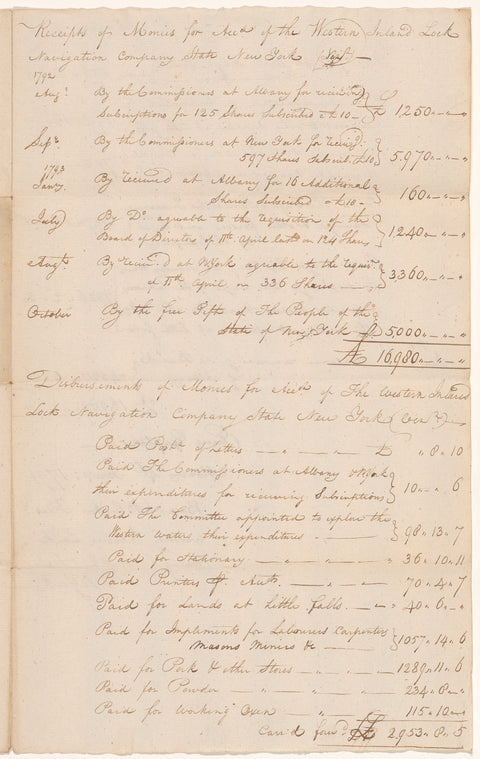 Receipts of Monies for Acct of the Western Inland Lock
Navigation Company State New York
1792
Augt By the Commissioners at Albany for receiving
Subscriptions for 125 Shares Subscribed @ £10 — } £ 1,250 " — " — "
Sepr By the Commissioners at New York for received
597 Shares Subscrib'd @ £10 } 5,970 " — " — "
1793
Jany By received at Albany for 16 Additional
Shares Subscribed @ £10 — } 160 " — " — "
July By Do. agreable to the requisition of the
Board of Directors of 11th April last on 124 Shares } 1,240 " — " — "
Augt By receiv'd at NYork agreable to the requisn
of 11th April on 336 Shares — } 3,360 " — " — "
October By the free Gift of The People of the
State of New York £ 5,000 " — " — "
£ 16,980 " — " — "
Disbursements of Monies for Acct of The Western Inland
Lock Navigation Company State New York
Paid Poste of Letters — " — " — £ " 8 " 10
Paid The Commissioners at Albany & NYork
their expenditures for receiving Subscriptions } 10 " — " 6
Paid The Committee appointed to explore the
Western waters, their expenditures — } 98 " 13 " 7
Paid for Stationary — " — " — " 36 " 10 " 11
Paid Printers Accts. — " — " — 70 " 4 " 7
Paid for Lands at Little falls — " — " 40 " 0 " — "
Paid for Implements for Labourers Carpenters
Masons Miners &c — } 1057 " 14 " 6
Paid for Pork & other Stores — " — " 1289 " 11 " 6
Paid for Powder — " — " — " 234 " 8 " — "
Paid for Working Oxen — " — " 115 " 10 " — "
Carr'd forwd £ 2,953 " 8 " 5